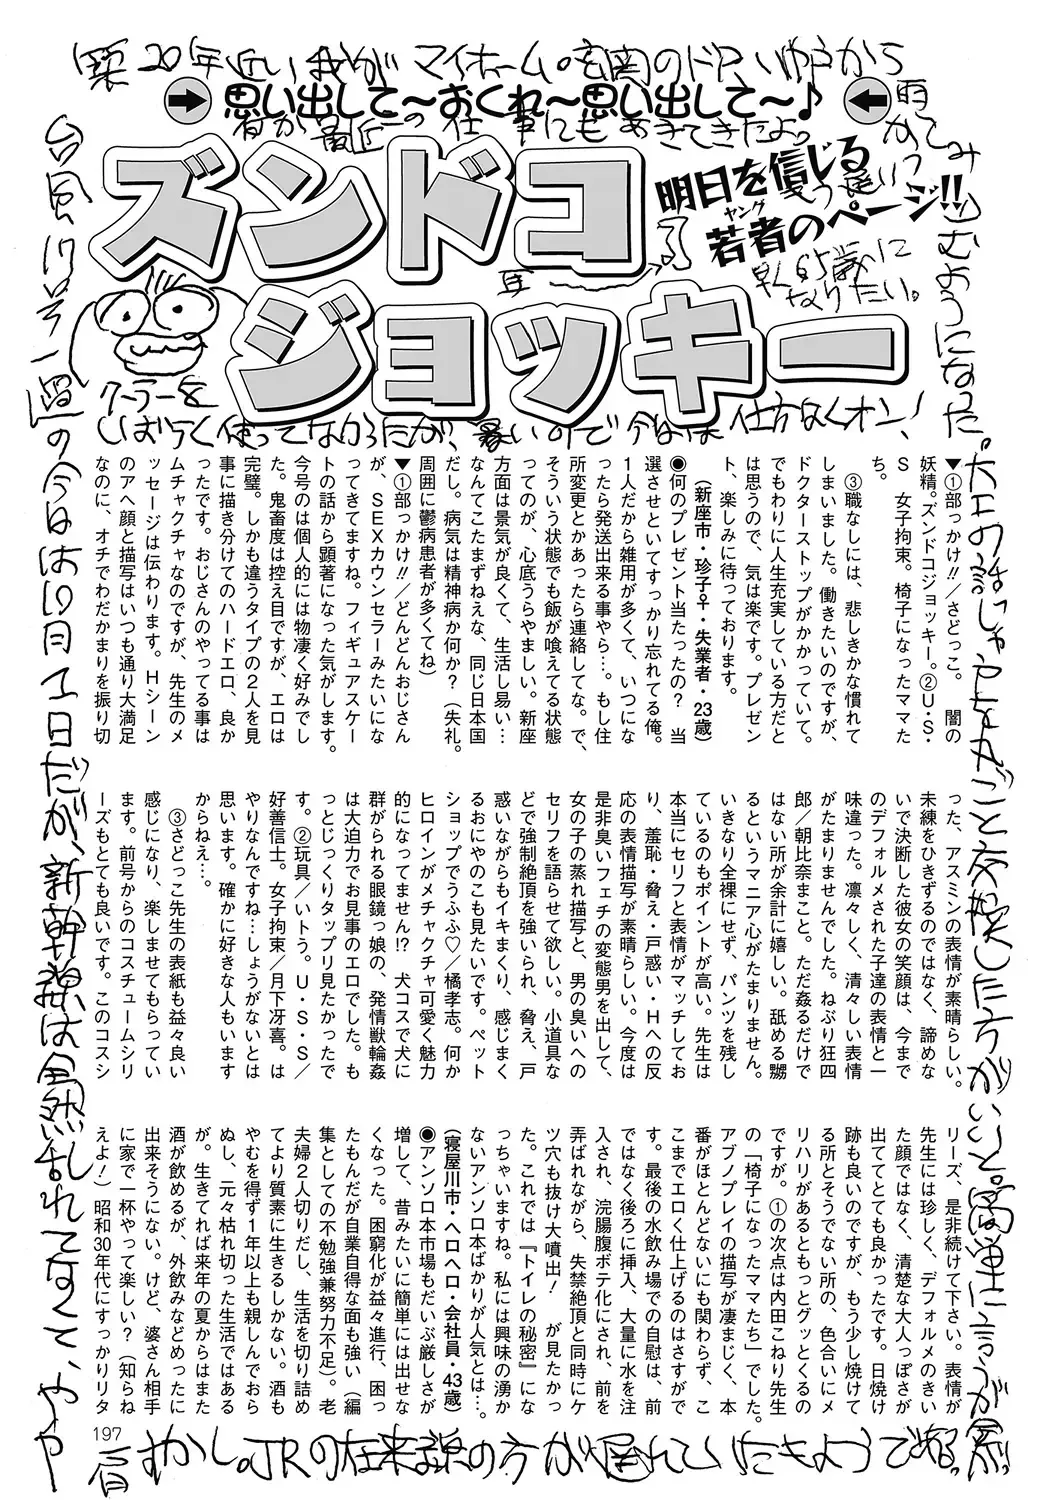 築20年近い我がマイホーム。玄関のドア
思い出して〜おくれ〜思い出して〜♪
最近この仕事にもあきてきたよ。
ズンドコ
ジョッキー
明日を信じる
若者のページ!!
ヤング
早く65歳に
なりたい。
クーラーを
しばらく使ってなかったが、暑いので今日は仕方なくオン!
雨がしみこむようになった。
台風19号一過の今日は10月1日だが、新幹線は
JRの在来線の方が遅れていたようである。
▼①部っかけ!!/さどっこ。 闇の
妖精。ズンドコジョッキー。②U・S・
S 女子拘束。椅子になったママた
ち。
③職なしには、悲しきかな慣れて
しまいました。働きたいのですが、
ドクターストップがかかっていて。
でもわりに人生充実している方だと
は思うので、気は楽です。プレゼン
ト、楽しみに待っております。
(新座市・珍子♀・失業者・23歳)
◉何のプレゼント当たったの? 当
選させといてすっかり忘れてる俺。
1人だから雑用が多くて、いつにな
ったら発送出来る事やら…。もし住
所変更とかあったら連絡してな。で、
そういう状態でも飯が喰えてる状態
ってのが、心底うらやましい。新座
方面は景気が良くて、生活し易い…
なんてこたまずねえな、同じ日本国
だし。病気は精神病か何か?(失礼。
周囲に鬱病患者が多くてね)
▼①部っかけ!!/どんどんおじさん
が、SEXカウンセラーみたいにな
ってきてますね。フィギュアスケー
トの話から顕著になった気がします。
今号のは個人的には物凄く好みでし
た。鬼畜度は控え目ですが、エロは
完璧。しかも違うタイプの2人を見
事に描き分けてのハードエロ、良か
ったです。おじさんのやってる事は
ムチャクチャなのですが、先生のメ
ッセージは伝わります。Hシーン
のアヘ顔と描写はいつも通り大満足
なのに、オチでわだかまりを振り切
った、アスミンの表情が素晴らしい。
未練をひきずるのではなく、諦めな
いで決断した彼女の笑顔は、今まで
のデフォルメされた子達の表情と一
味違った。凛々しく、清々しい表情
がたまりませんでした。ねぶり狂四
郎/朝比奈まこと。ただ姦るだけで
はない所が余計に嬉しい。舐める嬲
るというマニア心がたまりません。
いきなり全裸にせず、パンツを残し
ているのもポイントが高い。先生は
本当にセリフと表情がマッチしてお
り、羞恥・脅え・戸惑い・Hへの反
応の表情描写が素晴らしい。今度は
是非臭いフェチの変態男を出して、
女の子の蒸れ描写と、男の臭いへの
セリフを語らせて欲しい。小道具な
どで強制絶頂を強いられ、脅え、戸
惑いながらもイキまくり、感じまく
るおにやのこも見たいです。ペット
ショップでうふふ♡/橘孝志。何か
ヒロインがメチャクチャ可愛く魅力
的になってません!? 犬コスで犬に
群がられる眼鏡っ娘の、発情獣輪姦
は大迫力でお見事のエロでした。も
っとじっくりタップリ見たかったで
す。②玩具/いトう。U・S・S/
好善信士。女子拘束/月下冴喜。は
やりなんですね…しょうがないとは
思います。確かに好きな人もいます
からねえ…。
③さどっこ先生の表紙も益々良い
感じになり、楽しませてもらってい
ます。前号からのコスチュームシリ
ーズもとても良いです。このコスシ
リーズ、是非続けて下さい。表情が
先生には珍しく、デフォルメのきい
た顔ではなく、清楚な大人っぽさが
出ててとても良かったです。日焼け
跡も良いのですが、もう少し焼けて
る所とそうでない所の、色合いにメ
リハリがあるともっとグッとくるの
ですが。①の次点は内田こねり先生
の「椅子になったママたち」でした。
アブノプレイの描写が凄まじく、本
番がほとんどないにも関わらず、こ
こまでエロく仕上げるのはさすがで
す。最後の水飲み場での自慰は、前
ではなく後ろに挿入、大量に水を注
入され、浣腸腹ボテ化にされ、前を
弄ばれながら、失禁絶頂と同時にケ
ツ穴も抜け大噴出! が見たかっ
た。これでは『トイレの秘密』にな
っちゃいますね。私には興味の湧か
ないアンソロ本ばかりが人気とは…。
(寝屋川市・ヘロヘロ・会社員・43歳)
◉アンソロ本市場もだいぶ厳しさが
増して、昔みたいに簡単には出せな
くなった。困窮化が益々進行、困っ
たもんだが自業自得な面も強い(編
集としての不勉強兼努力不足)。老
夫婦2人切りだし、生活を切り詰め
てより質素に生きるしかない。酒も
やむを得ず1年以上も親しんでおら
ぬし、元々枯れ切った生活ではある
が。生きてれば来年の夏からはまた
酒が飲めるが、外飲みなどめったに
出来そうにない。けど、婆さん相手
に家で一杯やって楽しい?(知らね
えよ!)昭和30年代にすっかりリタ
197